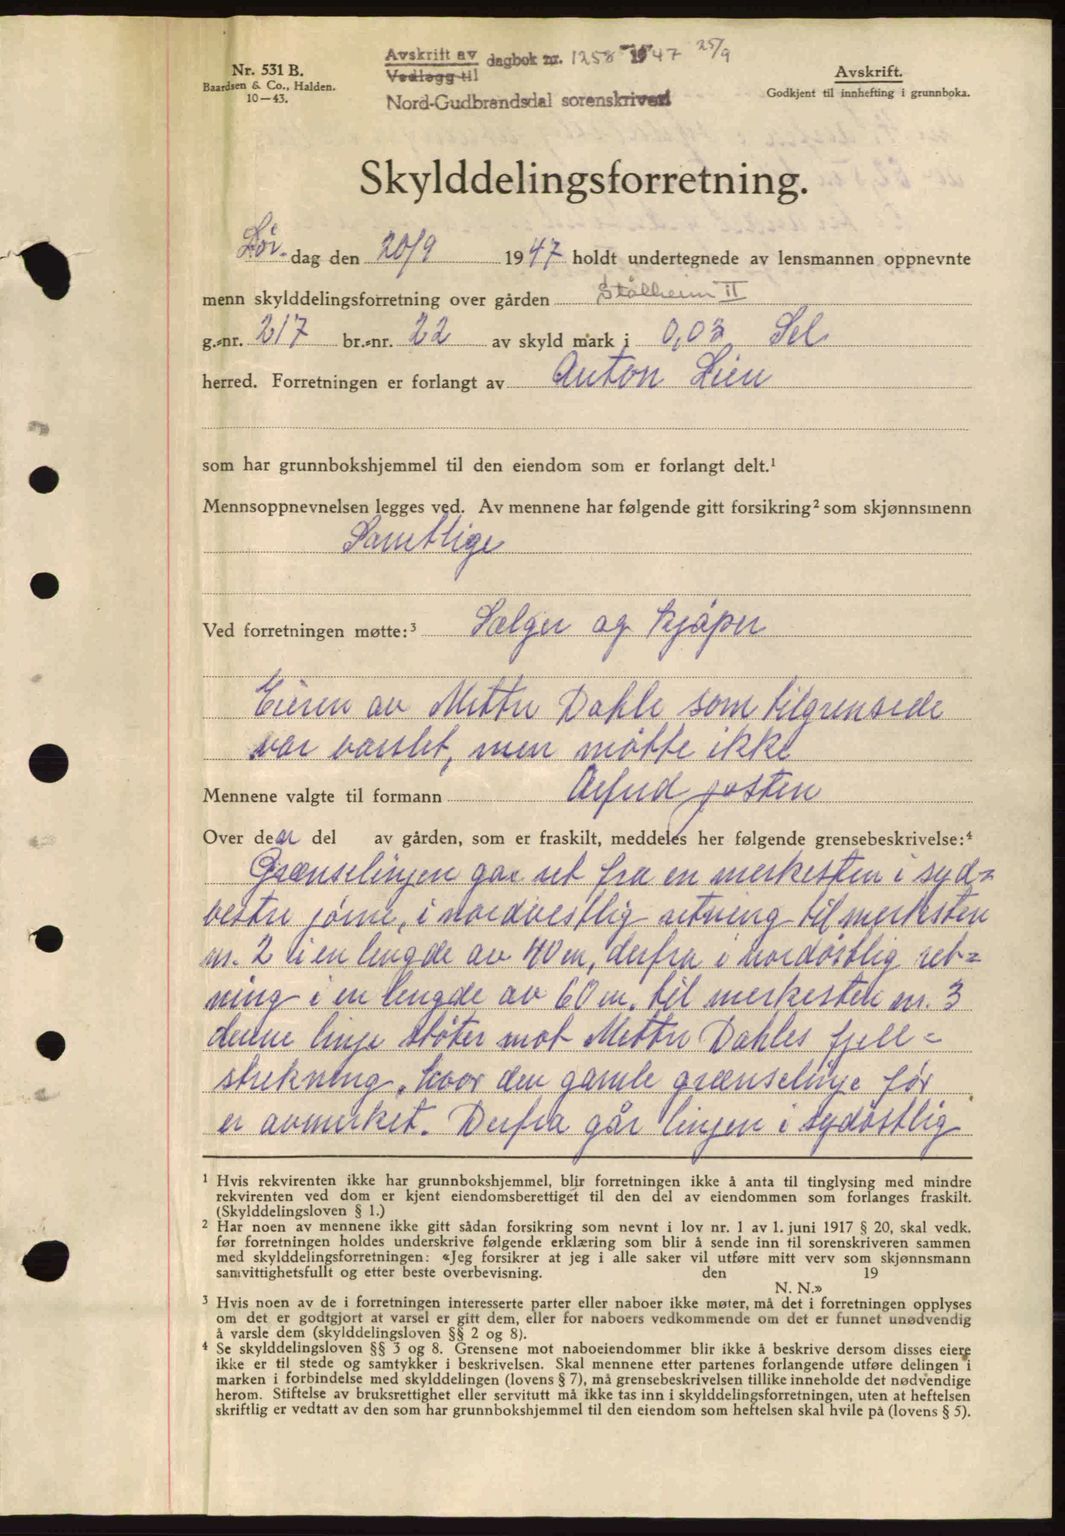 Nr. 531 B.
Baardsen & Co., Halden.
10—43.
Avskrift av
Vedlegg til
dagbok nr. 1258 1947 25/9
Nord-Gudbrandsdal sorenskriveri
Avskrift.
Godkjent til innhefting i grunnboka.
Skylddelingsforretning.
Lør- dag den 20/9 1947 holdt undertegnede av lensmannen oppnevnte
menn skylddelingsforretning over gården Stålheim II
g.-nr. 217 br.-nr. 22 av skyld mark i 0,03 Sel
herred. Forretningen er forlangt av Anton Lien
som har grunnbokshjemmel til den eiendom som er forlangt delt.¹
Mennsoppnevnelsen legges ved. Av mennene har følgende gitt forsikring² som skjønnsmenn
Samtlige
Ved forretningen møtte:³ Sælger og kjøper
Eieren av Mettre Dahle som tilgrensede
var varslet, men møtte ikke
Mennene valgte til formann Josten
Over den del av gården, som er fraskilt, meddeles her følgende grensebeskrivelse:⁴
Grænselinjen gar ut fra en merkesten i syd=
vestre jørne, i nordvestlig retning til merkesten
nr. 2 i en lengde av 40 m, derfra i nordøstlig ret=
ning i en lengde av 60 m. til merkesten nr. 3
denne linje støter mot Mettre Dahles fjell=
strekning, hvor den gamle grænselinje før
er avmerket. Derfra går linjen i sydøstlig
¹ Hvis rekvirenten ikke har grunnbokshjemmel, blir forretningen ikke å anta til tinglysing med mindre
rekvirenten ved dom er kjent eiendomsberettiget til den del av eiendommen som forlanges fraskilt.
(Skylddelingsloven § 1.)
² Har noen av mennene ikke gitt sådan forsikring som nevnt i lov nr. 1 av 1. juni 1917 § 20, skal vedk.
før forretningen holdes underskrive følgende erklæring som blir å sende inn til sorenskriveren sammen
med skylddelingsforretningen: «Jeg forsikrer at jeg i alle saker vil utføre mitt verv som skjønnsmann
samvittighetsfullt og etter beste overbevisning. den 19
N. N.»
³ Hvis noen av de i forretningen interesserte parter eller naboer ikke møter, må det i forretningen opplyses
om det er godtgjort at varsel er gitt dem, eller for naboers vedkommende om det er funnet unødvendig
å varsle dem (skylddelingsloven §§ 2 og 8).
⁴ Se skylddelingsloven §§ 3 og 8. Grensene mot naboeiendommer blir ikke å beskrive dersom disses eiere
ikke er til stede og samtykker i beskrivelsen. Skal mennene etter partenes forlangende utføre delingen i
marken i forbindelse med skylddelingen (lovens § 7), må grensebeskrivelsen tillike inneholde det nødvendige
herom. Stiftelse av bruksrettighet eller servitutt må ikke tas inn i skylddelingsforretningen, uten at heftelsen
skriftlig er vedtatt av den som har grunnbokshjemmel til den eiendom som heftelsen skal hvile på (lovens § 5).